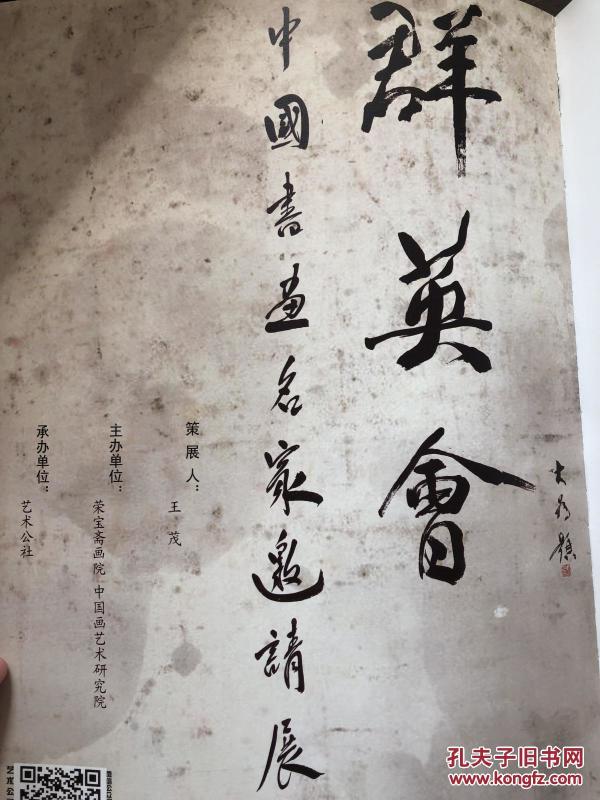 群英會
大为題
中國書畫名家邀請展
策展人：
王茂
主办单位：
荣宝斋画院 中国画艺术研究院
承办单位：
艺术公社
艺术公
孔夫子旧书网
www.kongfz.com